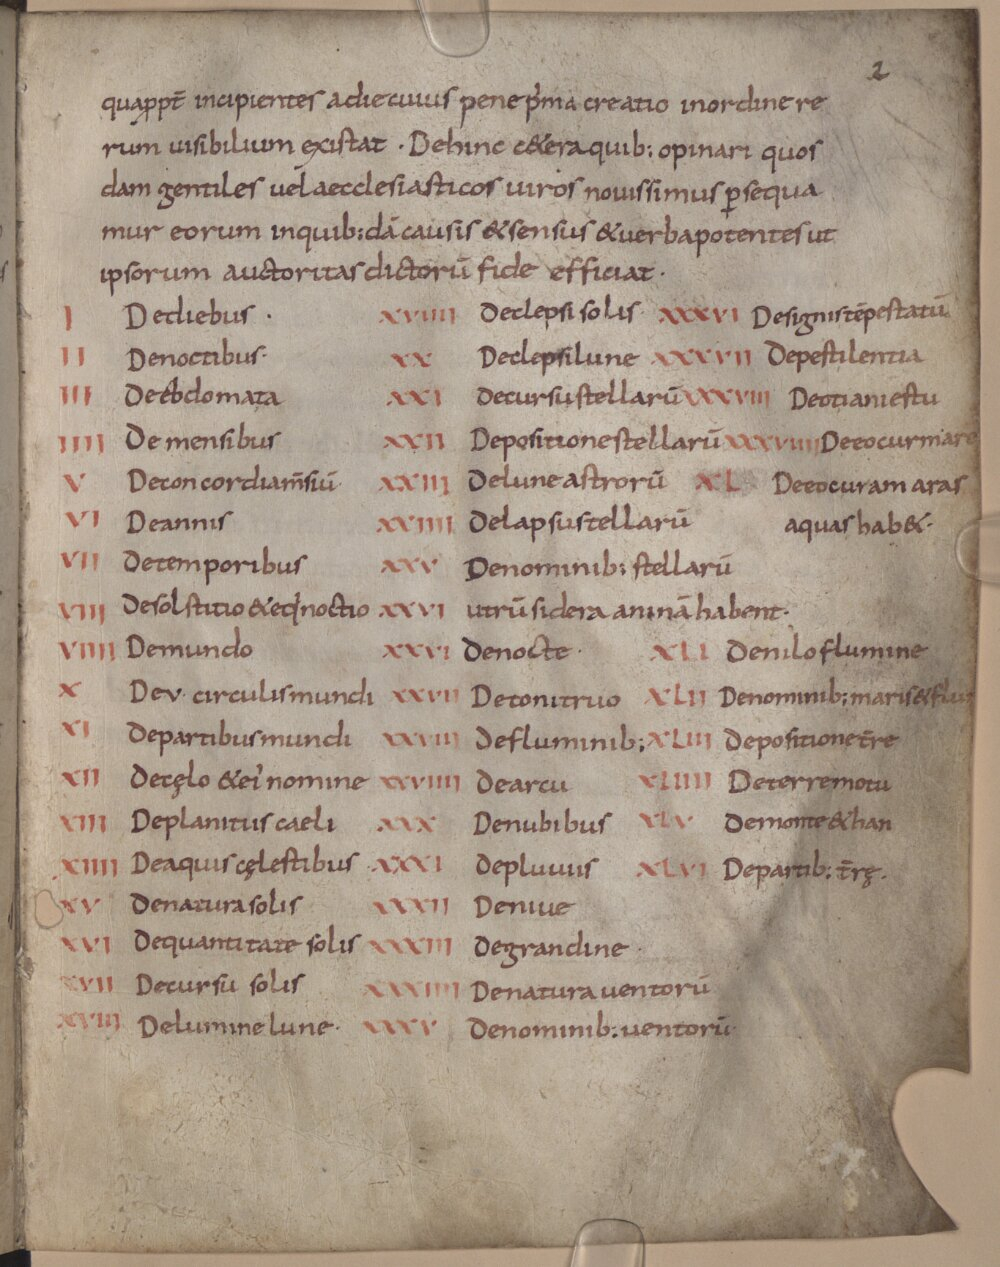 2
quapp̄t incipientes a die cuius pene p̄ma creatio in ordine re
rum uisibilium existat · Dehinc c&era quib; opinari quos
dam gentiles uel aecclesiasticos uiros nouissimus ꝑsequa
mur eorum in quib;dā causis & sensus & uerba potentes ut
ipsorum auctoritas dictorū fide efficiat ·
I De diebus ·
II De noctibus ·
III De ebdomata
IIII De mensibus
V De concordia m̄siū
VI De annis
VII De temporibus
VIII De solstitio & eq̇noctio
VIIII De mundo
X De v · circulis mundi
XI De partibus mundi
XII De cęlo & ei' nomine
XIII De planitus caeli
XIIII De aquis cęlestibus
XV De natura solis
XVI De quantitate solis
XVII De cursu solis
XVIII De lumine lune ·
XVIIII De clepsi solis
XX De clepsi lune
XXI De cursu stellarū
XXII De positione stellarū
XXIII De lune astrorū
XXIIII De lapsu stellarū
XXV De nominib; stellarū
XXVI utrū sidera animā habent ·
XXVI De nocte ·
XXVII De tonitruo
XXVIII De fluminib;
XXVIIII De arcu
XXX De nubibus
XXXI De pluuiis
XXXII De niue
XXXIII De grandine ·
XXXIIII De natura uentorū
XXXV De nominib; uentorū
XXXVI De signis tēpestatū
XXXVII De pestilentia
XXXVIII De otiani estu
XXXVIIII De eo cur mare
XL De eo cur amaras
aquas hab& ·
XLI De nilo flumine
XLII De nominib; maris & flu
XLIII De positione t̄re
XLIIII De terre motu
XLV De monte &han
XLVI De partib; t̄rę ·